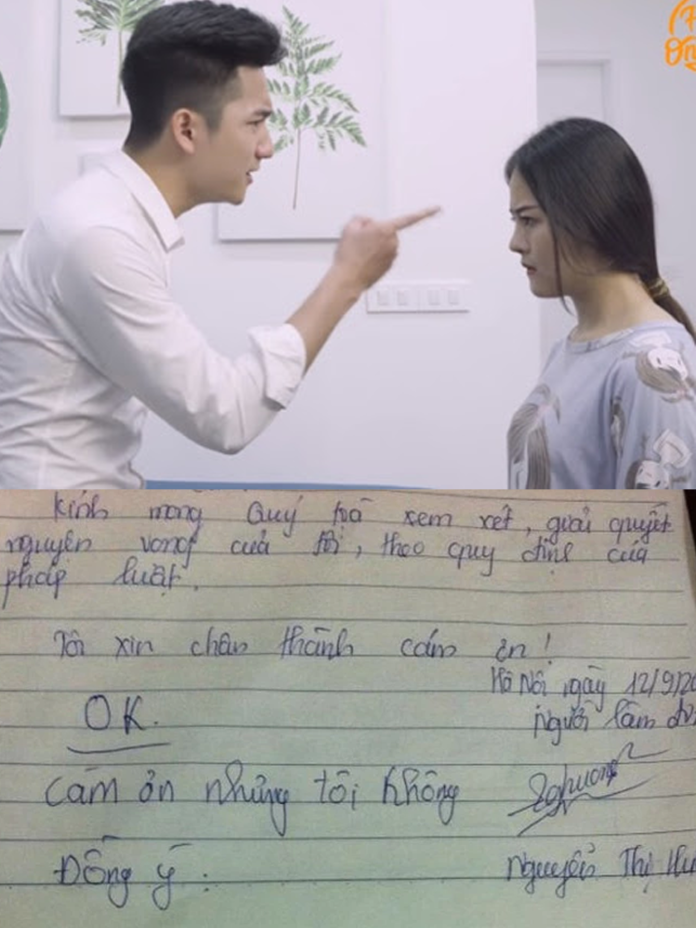 kính mong Quý toà xem xét, giải quyết
nguyện vọng của tôi, theo quy định của
pháp luật.
Tôi xin chân thành cảm ơn!
Hà Nội, ngày 12/9/20
OK.
Người làm đơ
cảm ơn nhưng tôi không
Đồng ý.
Nguyễn Thị Hư